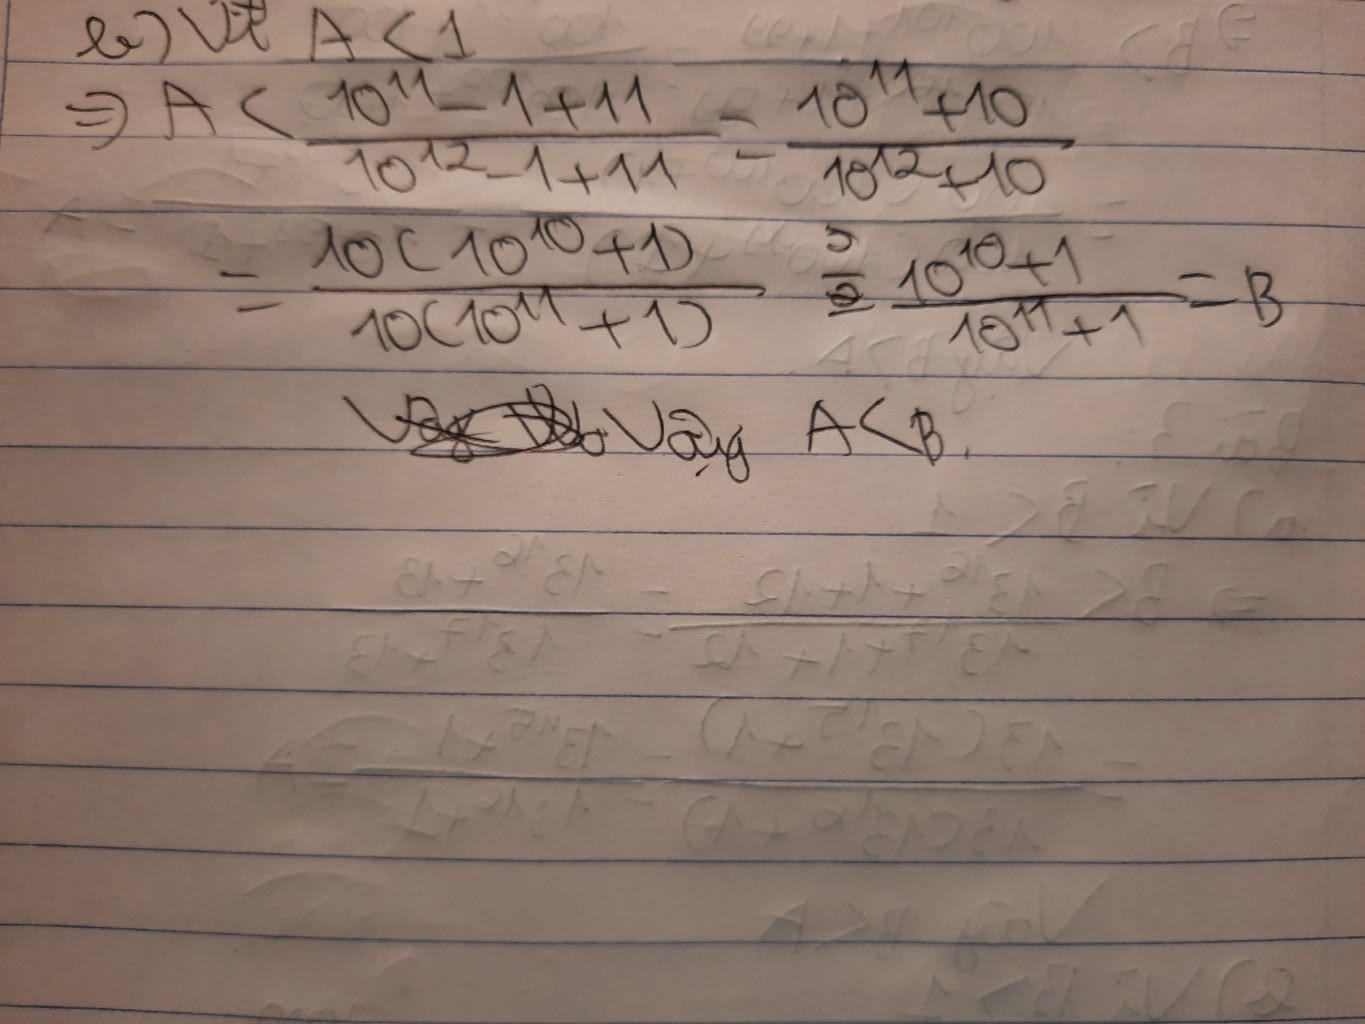 b) Vì A < 1
⇒ A < (10¹¹ - 1 + 11)/(10¹² - 1 + 11) = (10¹¹ + 10)/(10¹² + 10)
= 10(10¹⁰ + 1)/10(10¹¹ + 1) = (10¹⁰ + 1)/(10¹¹ + 1) = B
Vậy A < B.